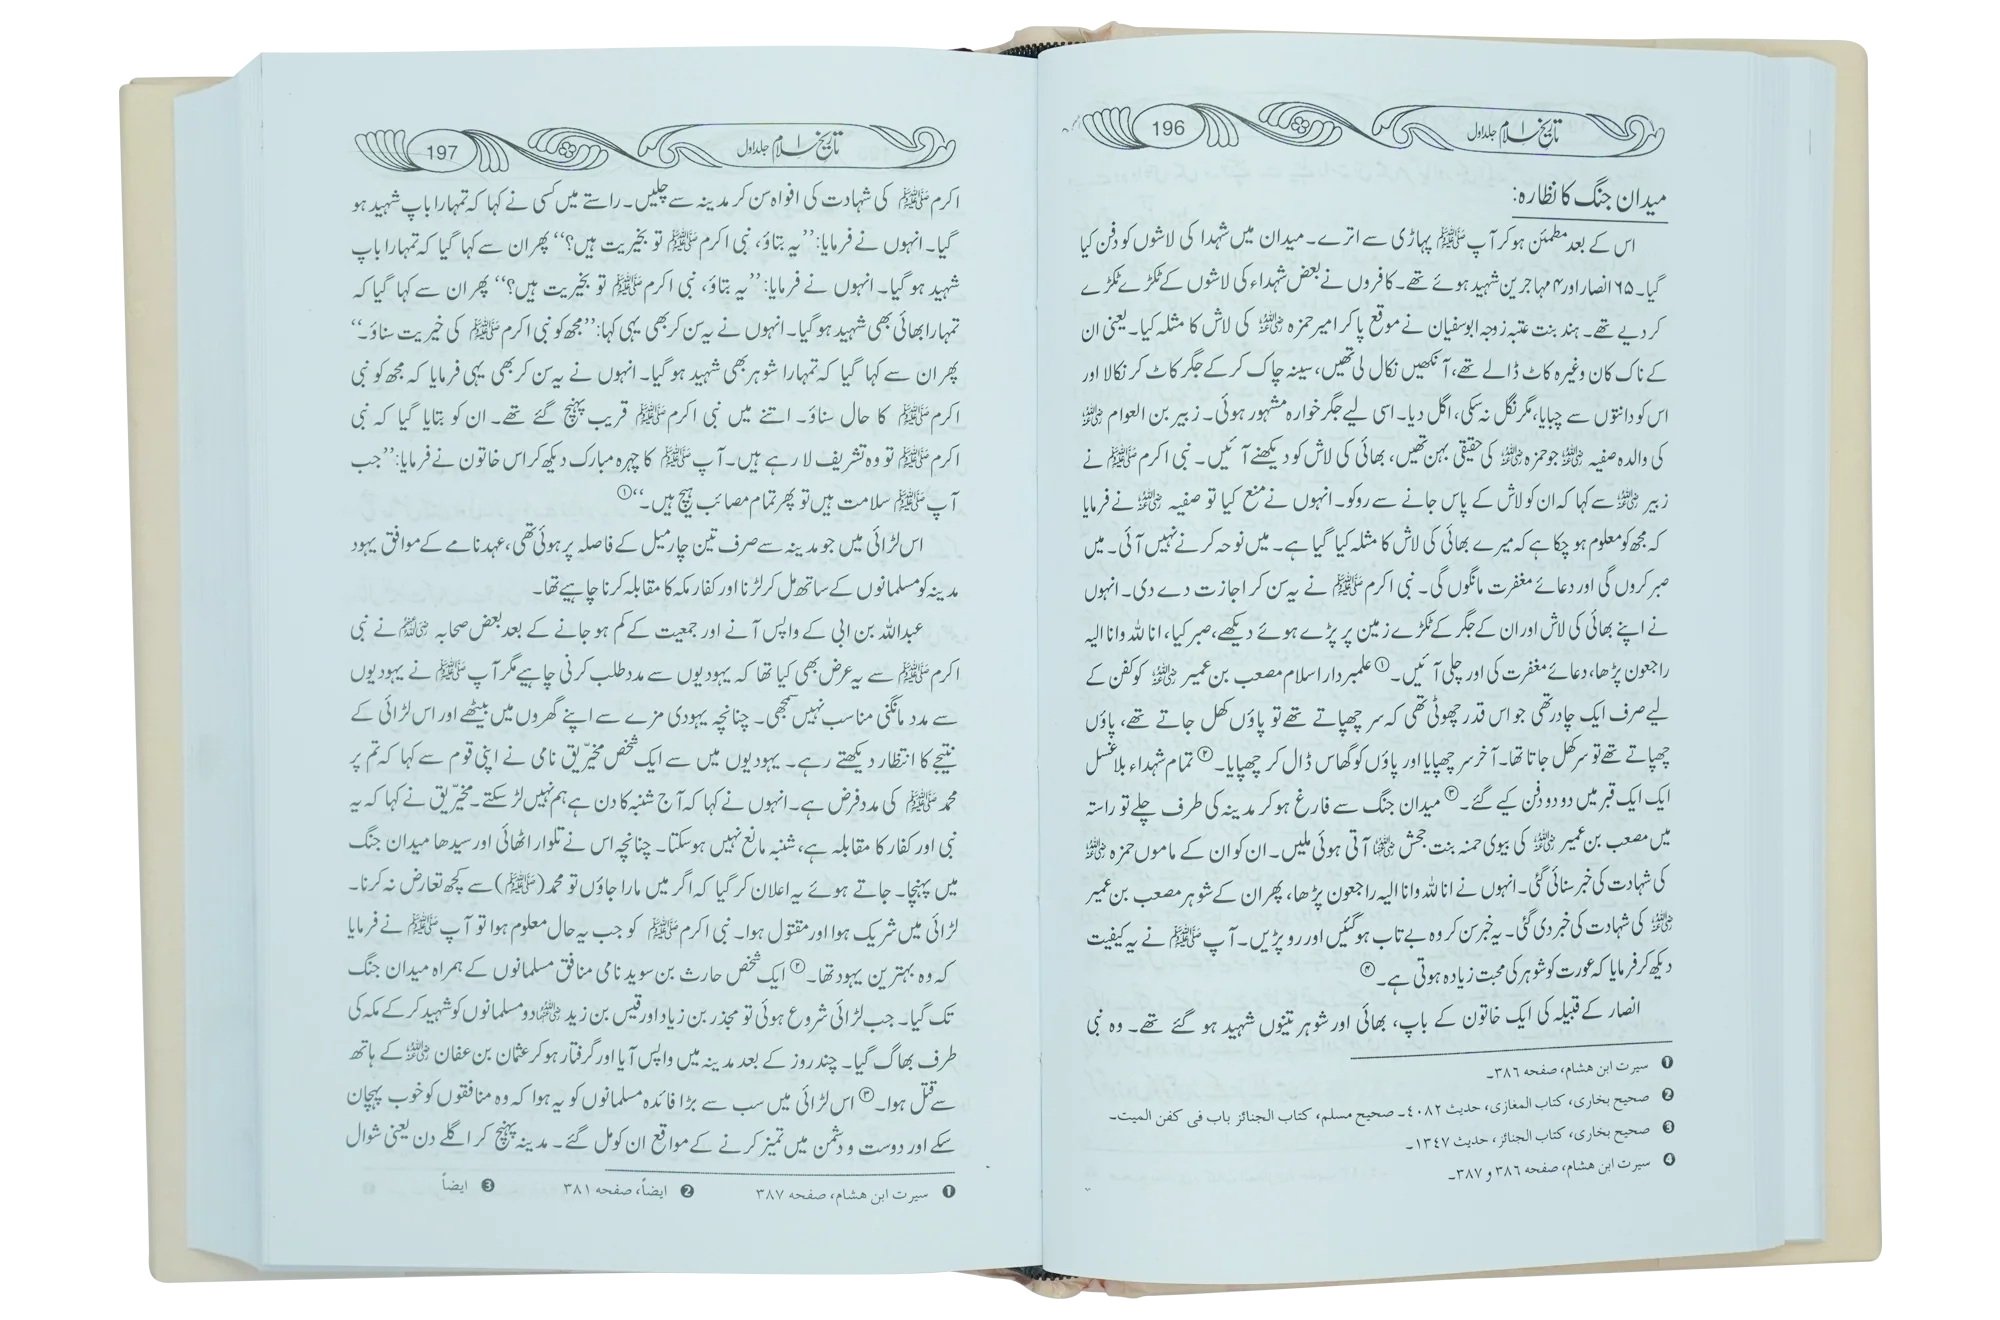 تاریخ اسلام جلد اول 196
میدان جنگ کا نظارہ:
اس کے بعد مطمئن ہو کر آپ ﷺ پہاڑی سے اترے۔ میدان میں شہدا کی لاشوں کو دفن کیا
گیا۔ ۶۵ انصار اور ۴ مہاجرین شہید ہوئے تھے۔ کافروں نے بعض شہداء کی لاشوں کے ٹکڑے ٹکڑے
کر دیے تھے۔ ہند بنت عتبہ زوجہ ابوسفیان نے موقع پا کر امیر حمزہ رضی اللہ عنہ کی لاش کا مثلہ کیا۔ یعنی ان
کے ناک کان وغیرہ کاٹ ڈالے تھے، آنکھیں نکال لی تھیں، سینہ چاک کر کے جگر کاٹ کر نکالا اور
اس کو دانتوں سے چبایا، مگر نگل نہ سکی، اگل دیا۔ اسی لیے جگر خوارہ مشہور ہوئی۔ زبیر بن العوام رضی اللہ عنہ
کی والدہ صفیہ رضی اللہ عنہا جو حمزہ رضی اللہ عنہ کی حقیقی بہن تھیں، بھائی کی لاش کو دیکھنے آئیں۔ نبی اکرم ﷺ نے
زبیر رضی اللہ عنہ سے کہا کہ ان کو لاش کے پاس جانے سے روکو۔ انہوں نے منع کیا تو صفیہ رضی اللہ عنہا نے فرمایا
کہ مجھ کو معلوم ہو چکا ہے کہ میرے بھائی کی لاش کا مثلہ کیا گیا ہے۔ میں نوحہ کرنے نہیں آئی۔ میں
صبر کروں گی اور دعائے مغفرت مانگوں گی۔ نبی اکرم ﷺ نے یہ سن کر اجازت دے دی۔ انہوں
نے اپنے بھائی کی لاش اور ان کے جگر کے ٹکڑے زمین پر پڑے ہوئے دیکھے، صبر کیا، انا للہ وانا الیہ
راجعون پڑھا، دعائے مغفرت کی اور چلی آئیں۔① علمبردار اسلام مصعب بن عمیر رضی اللہ عنہ کو کفن کے
لیے صرف ایک چادر تھی جو اس قدر چھوٹی تھی کہ سر چھپاتے تھے تو پاؤں کھل جاتے تھے، پاؤں
چھپاتے تھے تو سر کھل جاتا تھا۔ آخر سر چھپایا اور پاؤں کو گھاس ڈال کر چھپایا۔② تمام شہداء بلا غسل
ایک ایک قبر میں دو دو دفن کیے گئے۔③ میدان جنگ سے فارغ ہو کر مدینہ کی طرف چلے تو راستہ
میں مصعب بن عمیر رضی اللہ عنہ کی بیوی حمنہ بنت جحش رضی اللہ عنہا آتی ہوئی ملیں۔ ان کو ان کے ماموں حمزہ رضی اللہ عنہ
کی شہادت کی خبر سنائی گئی۔ انہوں نے انا للہ وانا الیہ راجعون پڑھا، پھر ان کے شوہر مصعب بن عمیر
رضی اللہ عنہ کی شہادت کی خبر دی گئی۔ یہ خبر سن کر وہ بے تاب ہو گئیں اور رو پڑیں۔ آپ ﷺ نے یہ کیفیت
دیکھ کر فرمایا کہ عورت کو شوہر کی محبت زیادہ ہوتی ہے۔④
انصار کے قبیلہ کی ایک خاتون کے باپ، بھائی اور شوہر تینوں شہید ہو گئے تھے۔ وہ نبی
❶ سیرت ابن هشام، صفحه ٣٨٦۔
❷ صحیح بخاری، کتاب المغازی، حدیث ٤٠٨٢۔ صحیح مسلم، کتاب الجنائز باب فی کفن المیت۔
❸ صحیح بخاری، کتاب الجنائز، حدیث ١٣٤٧۔
❹ سیرت ابن هشام، صفحه ٣٨٦ و ٣٨٧۔
تاریخ اسلام جلد اول 197
اکرم ﷺ کی شہادت کی افواہ سن کر مدینہ سے چلیں۔ راستے میں کسی نے کہا کہ تمہارا باپ شہید ہو
گیا۔ انہوں نے فرمایا: ’’یہ بتاؤ، نبی اکرم ﷺ تو بخیریت ہیں؟‘‘ پھر ان سے کہا گیا کہ تمہارا باپ
شہید ہو گیا۔ انہوں نے فرمایا: ’’یہ بتاؤ، نبی اکرم ﷺ تو بخیریت ہیں؟‘‘ پھر ان سے کہا گیا کہ
تمہارا بھائی بھی شہید ہو گیا۔ انہوں نے یہ سن کر بھی یہی کہا: ’’مجھ کو نبی اکرم ﷺ کی خیریت سناؤ۔‘‘
پھر ان سے کہا گیا کہ تمہارا شوہر بھی شہید ہو گیا۔ انہوں نے یہ سن کر بھی یہی فرمایا کہ مجھ کو نبی
اکرم ﷺ کا حال سناؤ۔ اتنے میں نبی اکرم ﷺ قریب پہنچ گئے تھے۔ ان کو بتایا گیا کہ نبی
اکرم ﷺ تو وہ تشریف لا رہے ہیں۔ آپ ﷺ کا چہرہ مبارک دیکھ کر اس خاتون نے فرمایا: ’’جب
آپ ﷺ سلامت ہیں تو پھر تمام مصائب ہیچ ہیں۔‘‘①
اس لڑائی میں جو مدینہ سے صرف تین چار میل کے فاصلہ پر ہوئی تھی، عہد نامے کے موافق یہود
مدینہ کو مسلمانوں کے ساتھ مل کر لڑنا اور کفار مکہ کا مقابلہ کرنا چاہیے تھا۔
عبداللہ بن ابی کے واپس آنے اور جمعیت کے کم ہو جانے کے بعد بعض صحابہ رضی اللہ عنہم نے نبی
اکرم ﷺ سے یہ عرض بھی کیا تھا کہ یہودیوں سے مدد طلب کرنی چاہیے مگر آپ ﷺ نے یہودیوں
سے مدد مانگنی مناسب نہیں سمجھی۔ چنانچہ یہودی مزے سے اپنے گھروں میں بیٹھے اور اس لڑائی کے
نتیجے کا انتظار دیکھتے رہے۔ یہودیوں میں سے ایک شخص مخیریق نامی نے اپنی قوم سے کہا کہ تم پر
محمد ﷺ کی مدد فرض ہے۔ انہوں نے کہا کہ آج شنبہ کا دن ہے ہم نہیں لڑ سکتے۔ مخیریق نے کہا کہ یہ
نبی اور کفار کا مقابلہ ہے، شنبہ مانع نہیں ہو سکتا۔ چنانچہ اس نے تلوار اٹھائی اور سیدھا میدان جنگ
میں پہنچا۔ جاتے ہوئے یہ اعلان کر گیا کہ اگر میں مارا جاؤں تو محمد (ﷺ) سے کچھ تعارض نہ کرنا۔
لڑائی میں شریک ہوا اور مقتول ہوا۔ نبی اکرم ﷺ کو جب یہ حال معلوم ہوا تو آپ ﷺ نے فرمایا
کہ وہ بہترین یہود تھا۔② ایک شخص حارث بن سوید نامی منافق مسلمانوں کے ہمراہ میدان جنگ
تک گیا۔ جب لڑائی شروع ہوئی تو مجذر بن زیاد اور قیس بن زید رضی اللہ عنہما دو مسلمانوں کو شہید کر کے مکہ کی
طرف بھاگ گیا۔ چند روز کے بعد مدینہ میں واپس آیا اور گرفتار ہو کر عثمان بن عفان رضی اللہ عنہ کے ہاتھ
سے قتل ہوا۔③ اس لڑائی میں سب سے بڑا فائدہ مسلمانوں کو یہ ہوا کہ وہ منافقوں کو خوب پہچان
سکے اور دوست و دشمن میں تمیز کرنے کے مواقع ان کو مل گئے۔ مدینہ پہنچ کر اگلے دن یعنی شوال
❶ سیرت ابن هشام، صفحه ٣٨٧ ❷ ایضاً، صفحه ٣٨١ ❸ ایضاً